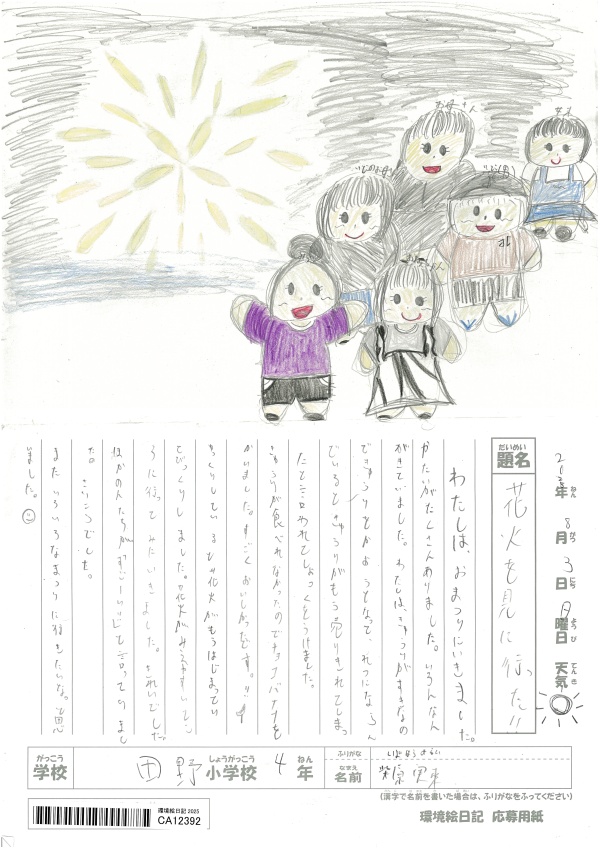 お母さん
だいめい
題名
花火を見に行った!!
年 8月3日 月曜日 天気
ねん がつ にち ようび てんき
わたしは、おまつりにいきました。
やたいがたくさんありました。いろんなん
がきていました。わたしは、きゅうりがすきなの
できゅうりをかおうとなって、れつにならん
でいるときゅうりがもう売りきれてしまっ
たと言われてしょっくをうけました。
きゅうりが食べれなかったのでチョコバナナを
かいました。すごくおいしかったです。!!
ゆっくりしているともう花火がもうはじまってい
てびっくりしました。花火がみえやすいとこ
ろに行ってみたいきました。きれいでした。
ほかの人たちが「すごーいい」と言っていまし
た。さいこうでした。
またいろいろなまつりに行きたいな。と思
いました。☺
がっこう
学校
田野
しょうがっこう
小学校
4
ねん
年
ふりがな
なまえ
名前
柴原
(漢字で名前を書いた場合は、ふりがなをふってください)
環境絵日記 2025
CA12392
環境絵日記 応募用紙